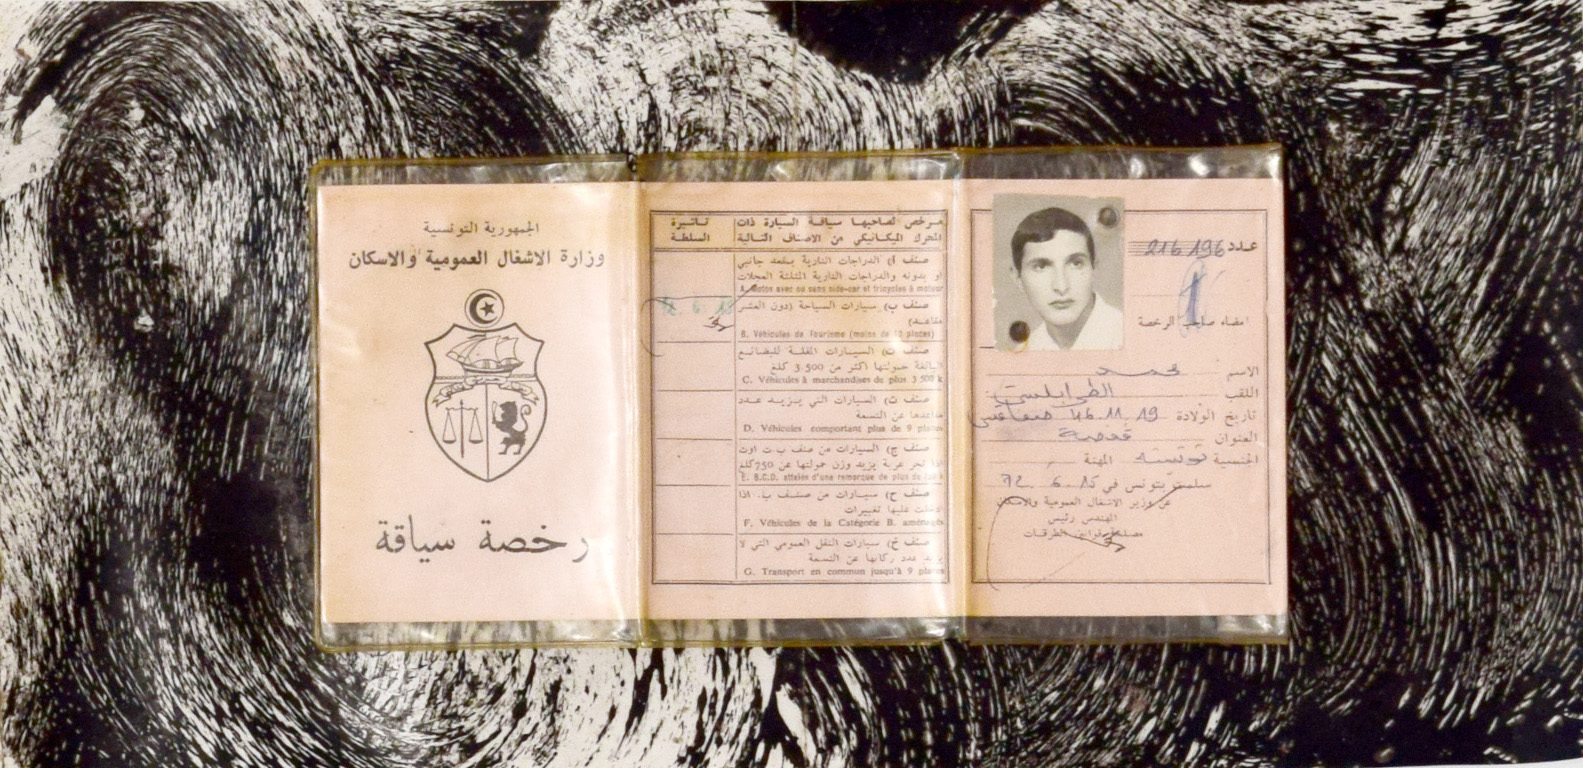 الجمهورية التونسية
وزارة الاشغال العمومية والاسكان
رخصة سياقة
مرخص لصاحبها سياقة السيارة ذات
المحرك الميكانيكي من الاصناف التالية
تاشيرة
السلطة
صنف أ) الدراجات النارية بمقعد جانبي
او بدونه والدراجات النارية المثلثة العجلات
A. Motos avec ou sans side-car et tricycles à moteur
صنف ب) سيارات السياحة (دون العشر
مقاعد)
B. Véhicules de Tourisme (moins de 10 places)
صنف ت) السيارات المقلة للبضائع
البالغة حمولتها اكثر من 500 3 كلغ
C. Véhicules à marchandises de plus 3 500 k
صنف ث) السيارات التي يزيد عدد
مقاعدها عن التسعة
D. Véhicules comportant plus de 9 places
صنف ج) السيارات من صنف ب ت اوث
لجر عربة يزيد وزن حمولتها عن 750 كلغ
E. B.C.D. attelés d'une remorque de plus de
صنف ح) سيارات من صنف ب. اذا
ادخلت عليها تغييرات
F. Véhicules de la Catégorie B. aménagés
صنف خ) سيارات النقل العمومي التي لا
يزيد عدد ركابها عن التسعة
G. Transport en commun jusqu'à 9 places
عدد 216196
امضاء صاحب الرخصة
الاسم محمد
اللقب الطرابلسي
تاريخ الولادة 19 .11 .46 صفاقس
العنوان قفصة
الجنسية تونسية المهنة
سلمت بتونس في 15 .6 .72
عن وزير الاشغال العمومية والاسكان
المهندس رئيس
مصلحة قوانين الطرقات